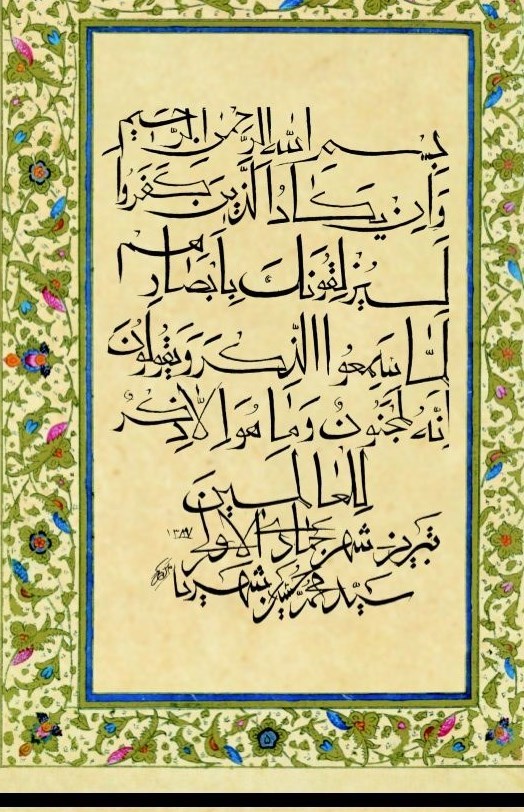 بِسمِ اللهِ الرَّحمنِ الرَّحیمِ
وَاِن یَکادُ الَّذینَ کَفَرُوا
لَیُزلِقُونَکَ بِاَبصارِهِم
لَمّا سَمِعُوا الذِّکرَ وَ یَقُولُونَ
اِنَّهُ لَمَجنُونٌ وَما هُوَ اِلّا ذِکرٌ
لِلعالَمین
تبریز شهر جمادی الاولی ۱۳۸۷
سید محمد حسین شهریار